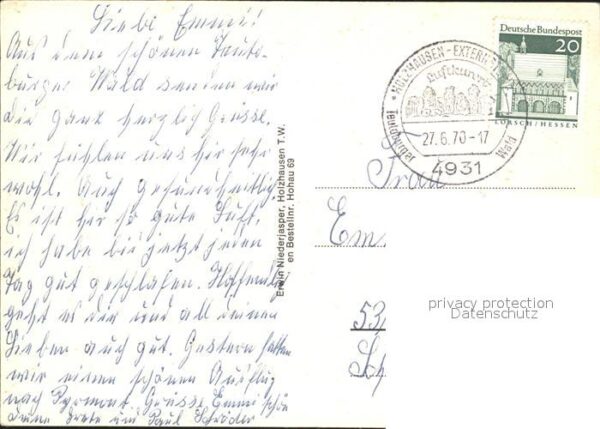 Liebe Emmi!
Aus dem schönen Teuto-
burger Wald senden wir
die ganz herzlig Grüsse.
Wir fühlen uns hir sehr
wohl. Auch gesundheitlig
Es ist her so gute Luft,
ich habe bis jetzt jeden
Tag gut geschlafen. Hoffendlig
geht es dir und all deinen
Lieben auch gut. Gestern hatten
wir einen schönen Ausflug
nach Pyrmont. Grüsse Emmi schön
deine und Paul Schröder
Erwin Niederjasper, Holzhausen T.W.
en Bestellnr. Hohau 69
HOLZHAUSEN-EXTERN
Luftkurort
Teutoburger Wald
27.6.70-17
4931
Deutsche Bundespost
20
LORSCH/HESSEN
Frau
Em
53
Sch
privacy protection
Datenschutz